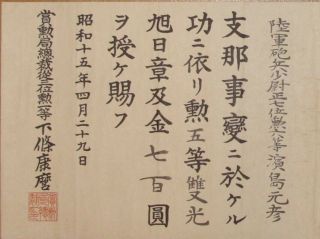 陸軍砲兵少尉正七位勲六等濱島元彦
支那事變ニ於ケル
功ニ依リ勲五等雙光
旭日章及金七百圓
ヲ授ケ賜フ
昭和十五年四月二十九日
賞勲局總裁從三位勲一等下條康麿